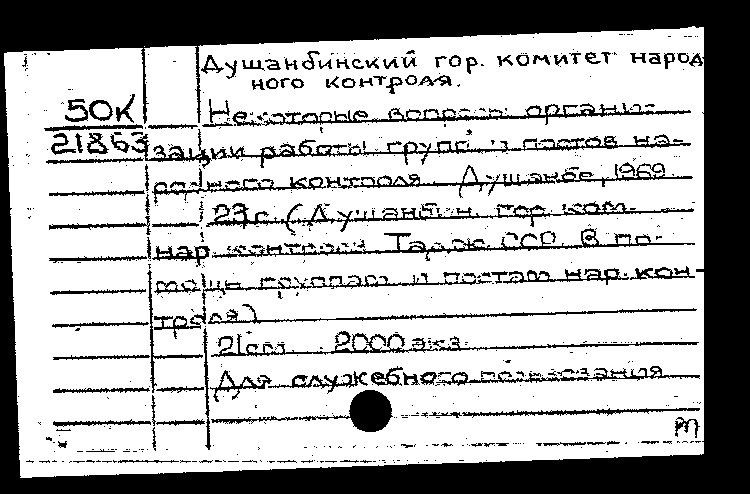 Душанбинский гор. комитет народ
ного контроля.
50К
Некоторые вопросы органи-
21863
зации работы групп и постов на-
родного контроля. Душанбе, 1969.
29 с. (Душанбин. гор. ком.
нар. контроля Тадж. ССР. В по-
мощь группам и постам нар. кон-
троля)
21 см. 2000 экз.
Для служебного пользования